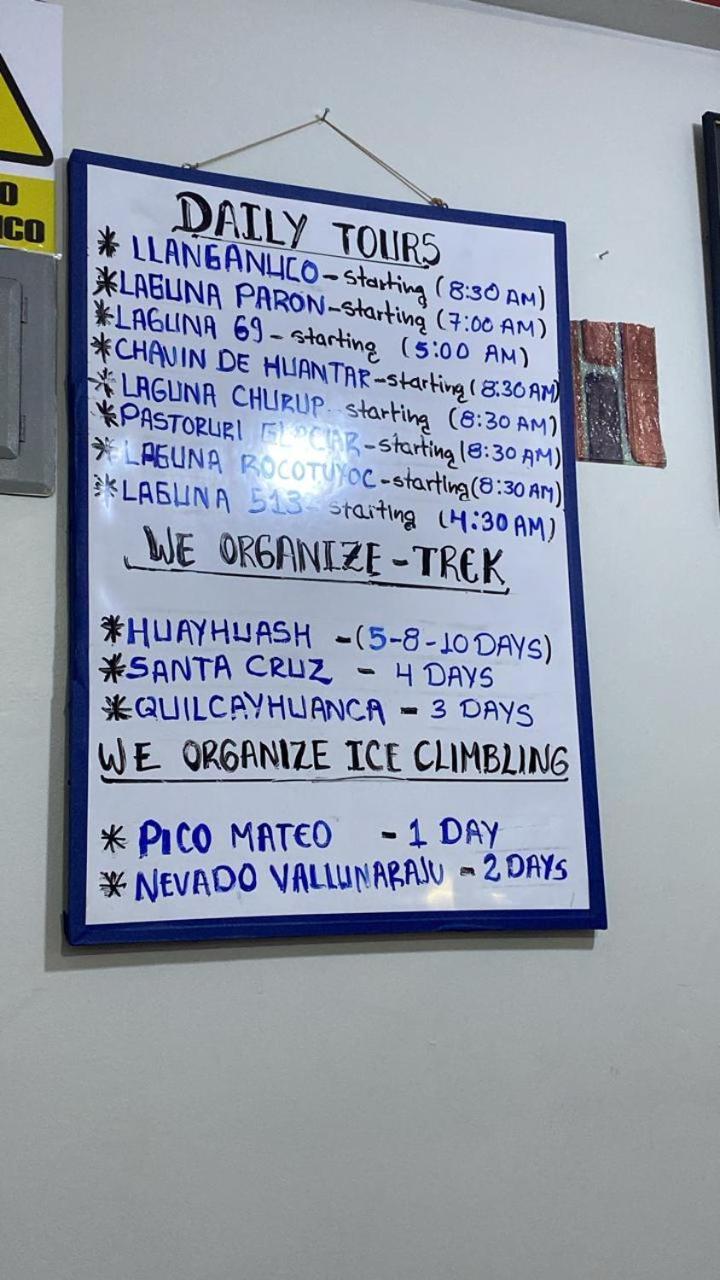 O
ICO
DAILY TOURS
* LLANGANUCO - starting (8:30 AM)
* LAGUNA PARON - starting (7:00 AM)
* LAGUNA 69 - starting (5:00 AM)
* CHAVIN DE HUANTAR - starting (8:30 AM)
* LAGUNA CHURUP - starting (8:30 AM)
* PASTORURI GLACIAR - starting (8:30 AM)
* LAGUNA ROCOTUYOC - starting (8:30 AM)
* LAGUNA 513 - starting (4:30 AM)
WE ORGANIZE - TREK
* HUAYHUASH - (5-8-10 DAYS)
* SANTA CRUZ - 4 DAYS
* QUILCAYHUANCA - 3 DAYS
WE ORGANIZE ICE CLIMBLING
* PICO MATEO - 1 DAY
* NEVADO VALLUNARAJU - 2 DAYS